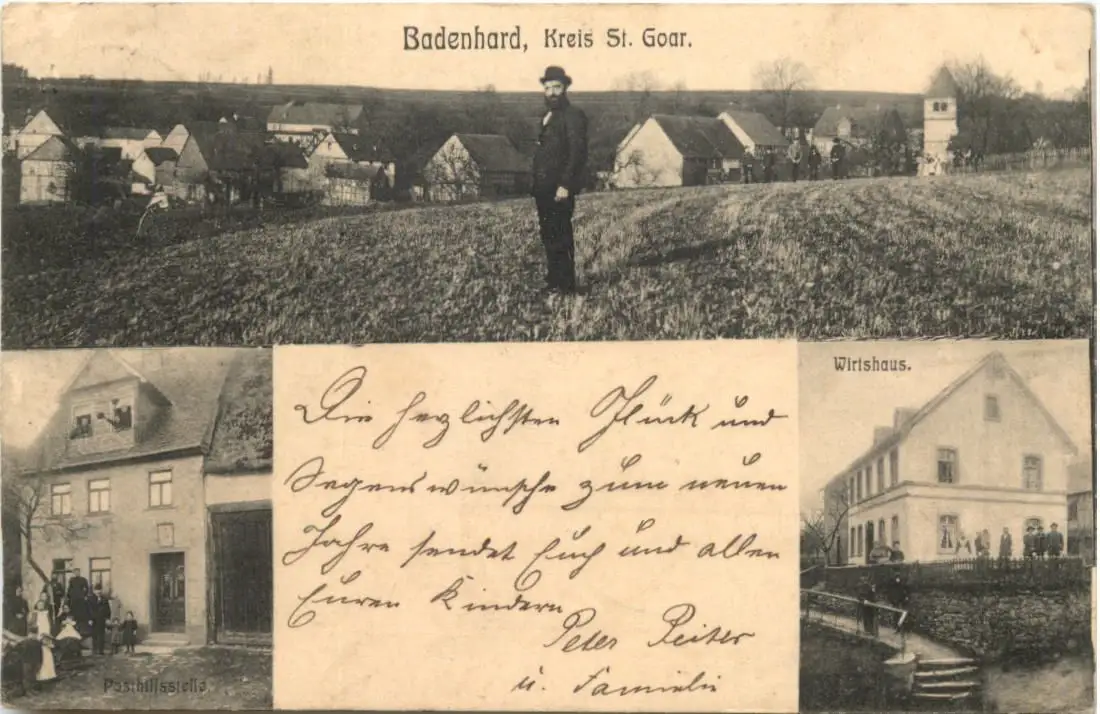 Badenhard, Kreis St. Goar.
Wirtshaus.
Die herzlichsten Glück und
Segenswünsche zum neuen
Jahre sendet Euch und allen
Euren Kindern
Peter Reiter
u. Familie
Posthilfsstelle.